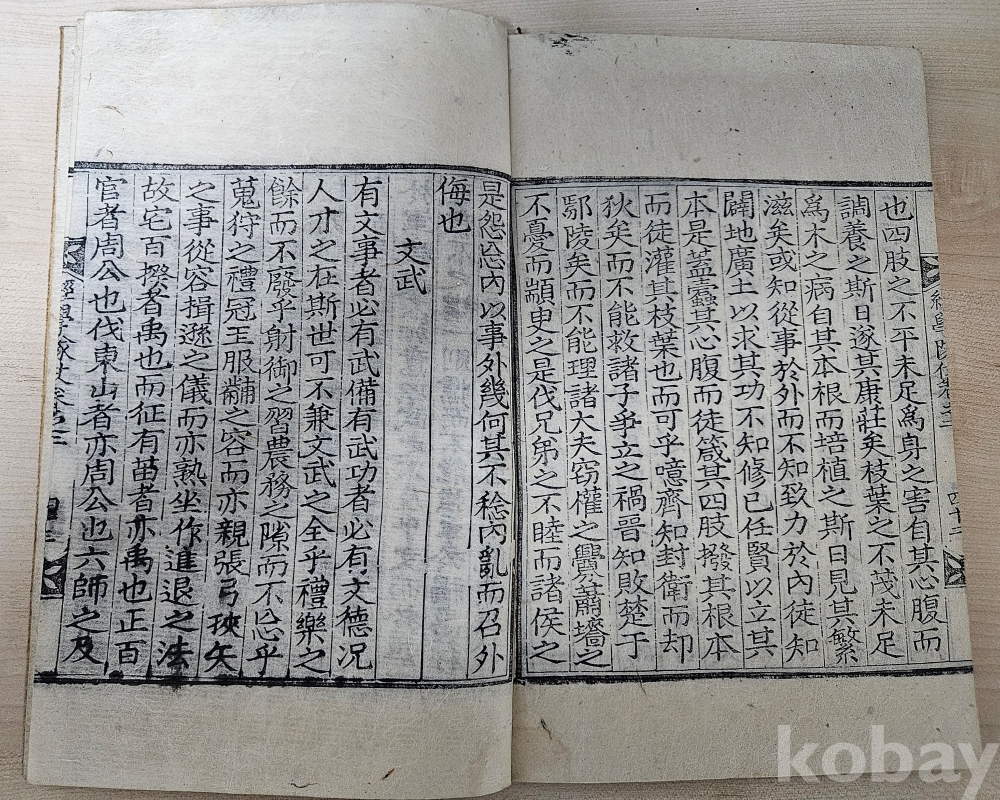 也四肢之不平未足爲身之害自其心腹而
調養之斯日遂其康莊矣枝葉之不茂未足
爲木之病自其本根而培植之斯日見其繁
滋矣或知從事於外而不知致力於內徒知
闢地廣土以求其功不知修己任賢以立其
本是蓋蠹其心腹而徒箴其四肢撥其根本
而徒灌其枝葉也而可乎噫齊知封衛而却
狄矣而不能救諸子爭立之禍晉知敗楚于
鄢陵矣而不能理諸大夫窃權之釁蕭墻之
不憂而顓臾之是伐兄弟之不睦而諸侯之
是怨忘內以事外幾何其不稔內亂而召外
侮也
文武
有文事者必有武備有武功者必有文德況
人才之在斯世可不兼文武之全乎禮樂之
餘而不廢乎射御之習農務之隙而不忘乎
蒐狩之禮冠玉服黼之容而亦親張弓挾矢
之事從容揖遜之儀而亦熟坐作進退之法
故宅百揆者禹也而征有苗者亦禹也正百
官者周公也伐東山者亦周公也六師之及
kobay